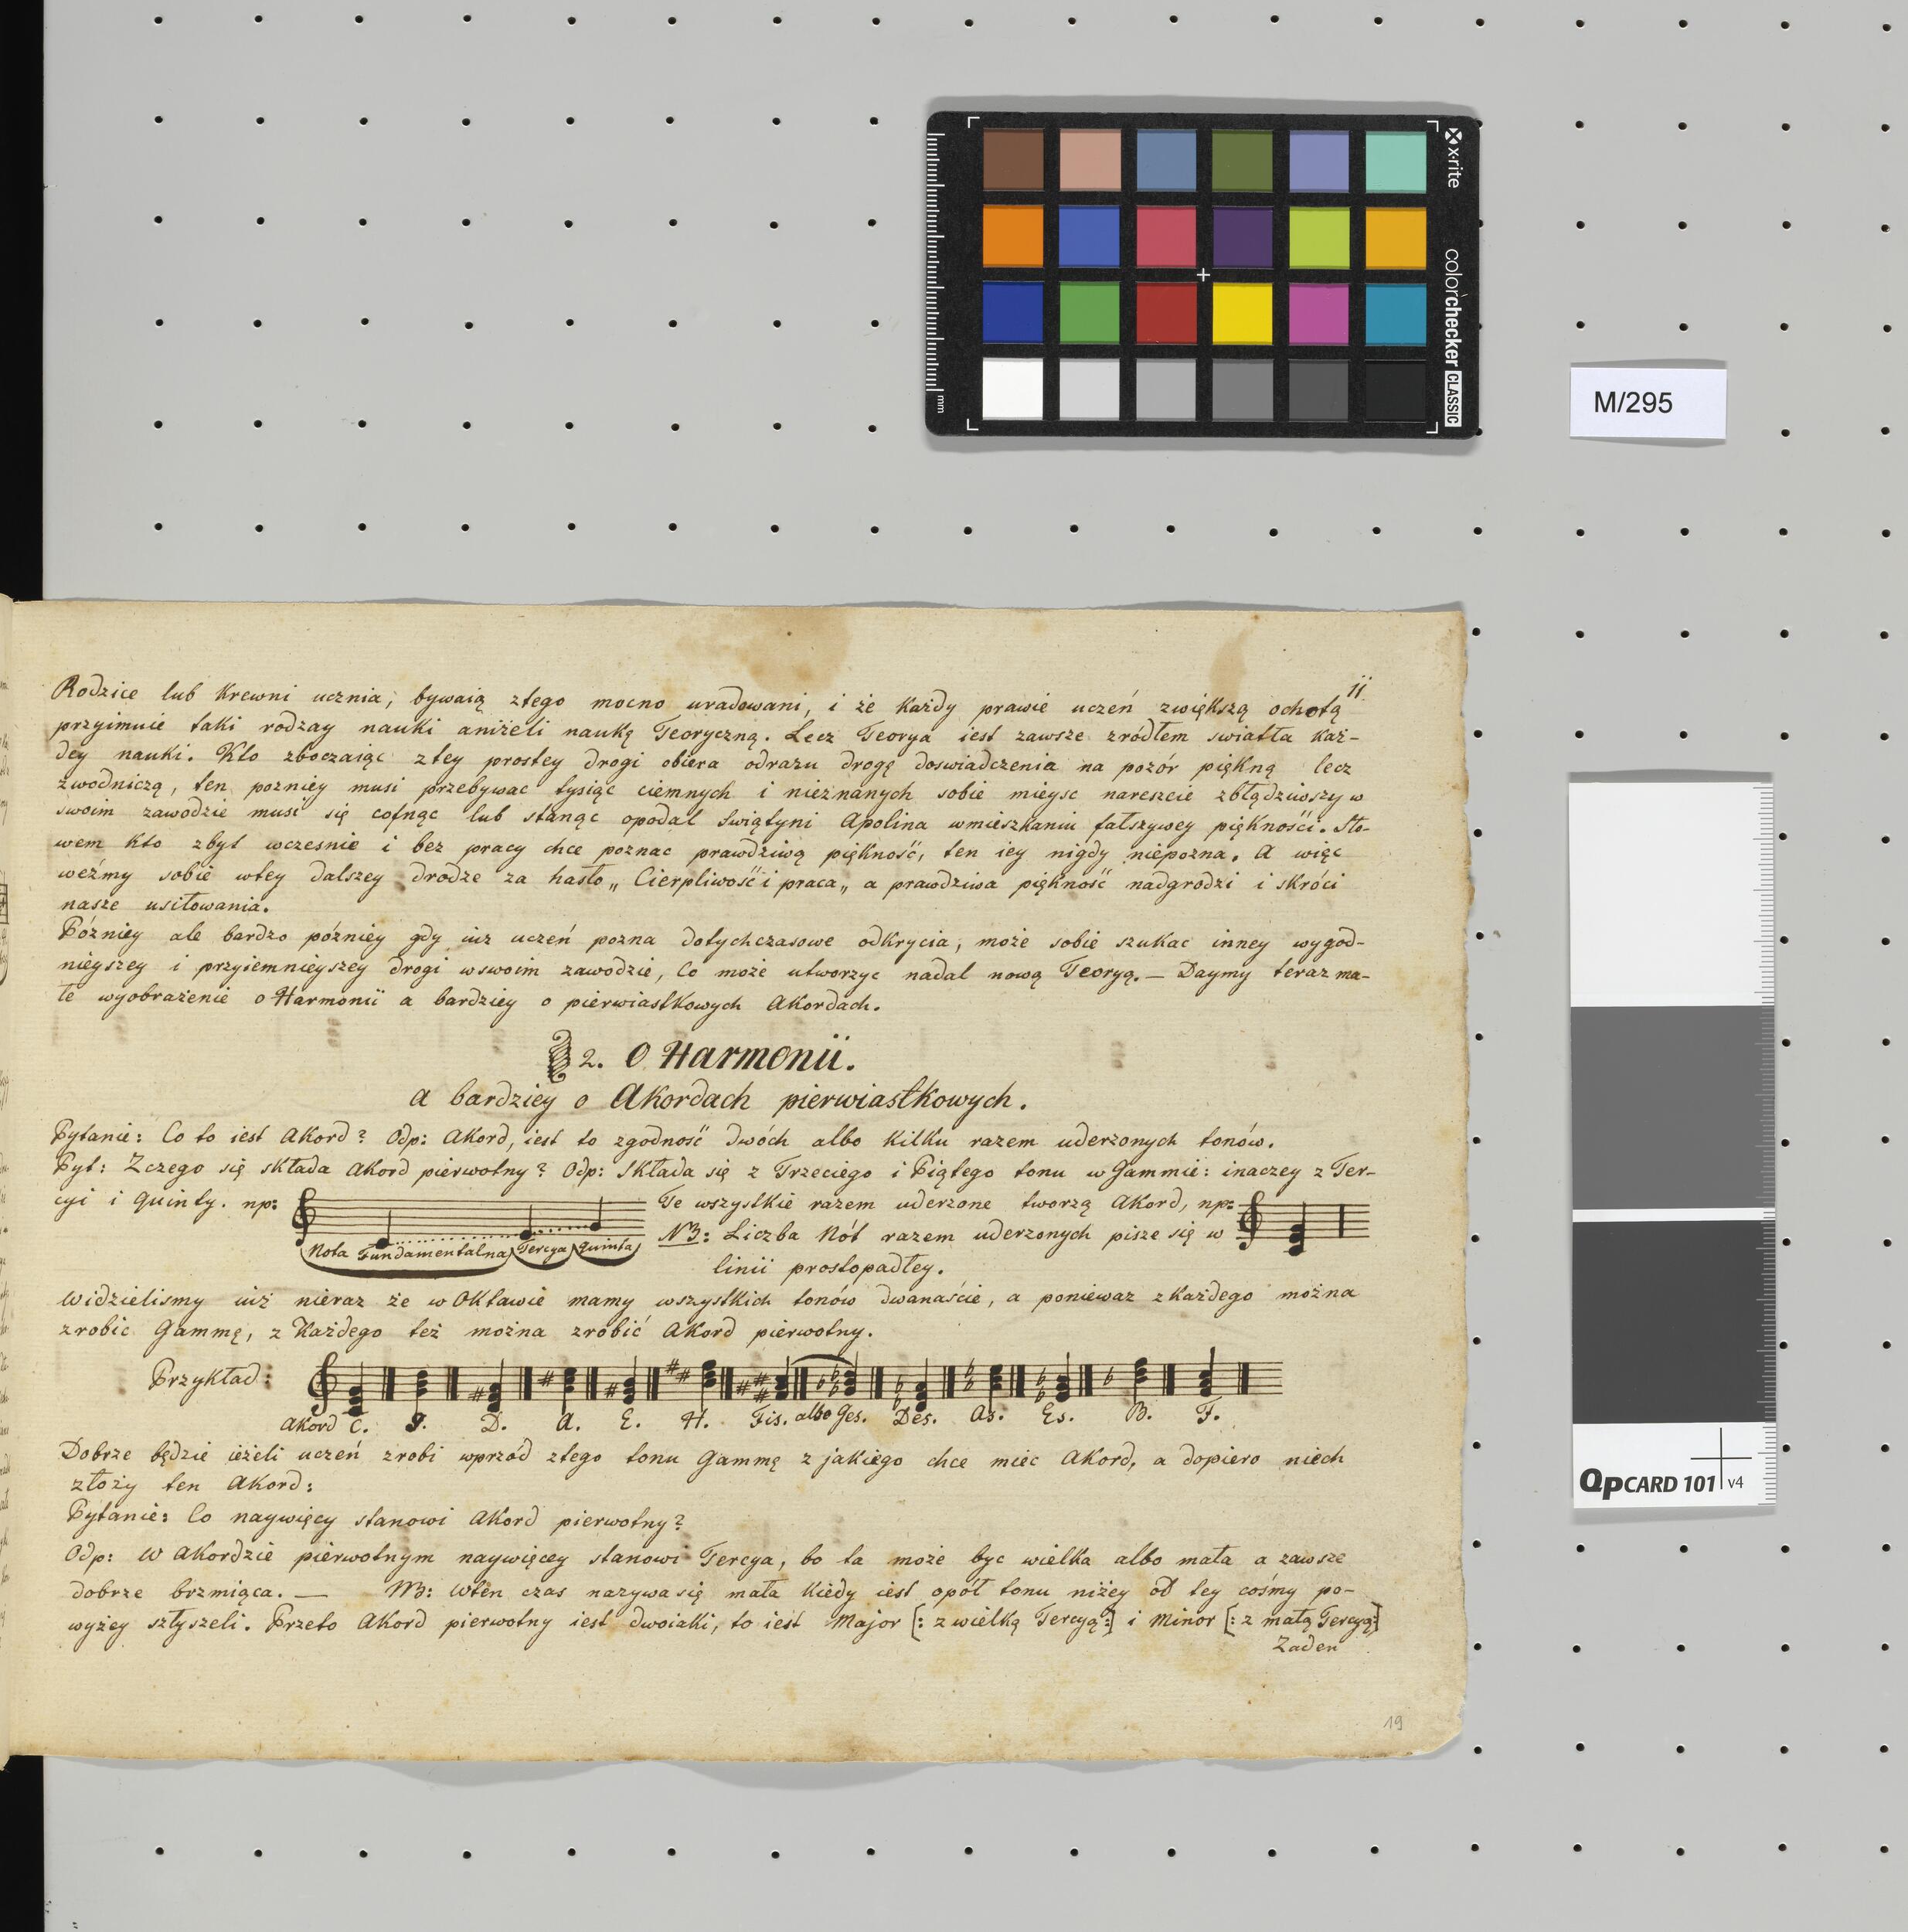 x·rite
colorchecker CLASSIC
mm
M/295
11
Rodzice lub Krewni ucznia, bywaią ztego mocno uradowani, i że Każdy prawie uczeń zwiększą ochotą
przyimuie taki rodzay nauki aniżeli naukę Teoryczną. Lecz Teorya iest zawsze zródłem swiatła Kaz-
dey nauki. Kto zboczaiąc ztey prostey drogi obiera odrazu drogę doswiadczenia na pozór piękną lecz
zwodniczą, ten pozniey musi przebywac tysiąc ciemnych i nieznanych sobie mieysc nareszcie zbłądziwszy w
swoim zawodzie musi się cofnąc lub stanąc opodal Swiątyni Apolina wmieszkaniu fałszywey pięknośći. Sło-
wem Kto zbyt wczesnie i bez pracy chce poznac prawdziwą piękność, ten iey nigdy niepozna. A więc
weźmy sobie wtey dalszey drodze za hasło „ Cierpliwość i praca„ a prawdziwa piękność nadgrodzi i skróci
nasze usiłowania.
Pózniey ale bardzo pózniey gdy iuz uczeń pozna dotychczasowe odkrycia, może sobie szukac inney wygod-
nieyszey i przyiemnieyszey drogi wswoim zawodzie, Co może utworzyc nadal nową Teoryą. — Daymy teraz ma-
łe wyobrażenie o Harmonii a bardziey o pierwiastkowych Akordach.
2. O Harmonii.
a bardziey o Akordach pierwiastkowych.
Pytanie: Co to iest Akord? Odp: Akord, iest to zgodność dwóch albo Kilku razem uderzonych tonów.
Pyt: Zczego się składa Akord pierwotny? Odp: Składa się z Trzeciego i Piątego tonu w Gammie: inaczey z Ter-
cyi i Quinty. np: Te wszystkie razem uderzone tworzą Akord, np:
Nota Fundamentalna Tercya Quinta
NB: Liczba Nót razem uderzonych pisze się w
linii prostopadłey.
Widzielismy iuż nieraz że w Oktawie mamy wszystkich tonów dwanaście, a poniewaz zKażdego można
zrobic Gammę, z Każdego też można zrobić Akord pierwotny.
Przykład:
Akord C. G. D. A. E. H. Fis. albo Ges. Des. As. Es. B. F.
Dobrze będzie ieżeli uczeń zrobi wprzód ztego tonu Gammę z jakiego chce miec Akord, a dopiero niech
złoży ten Akord:
Pytanie: Co naywięcy stanowi Akord pierwotny?
Odp: W Akordzie pierwotnym naywięcey stanowi Tercya, bo ta może byc wielka albo mała a zawsze
dobrze brzmiąca. — NB: Wten czas nazywa się mała Kiedy iest opół tonu niżey od tey cośmy po-
wyżey szłyszeli. Przeto Akord pierwotny iest dwoiaki, to iest Major [: z wielką Tercyą:] i Minor [: z małą Tercyą:]
Zaden
19
QpCARD 101 v4